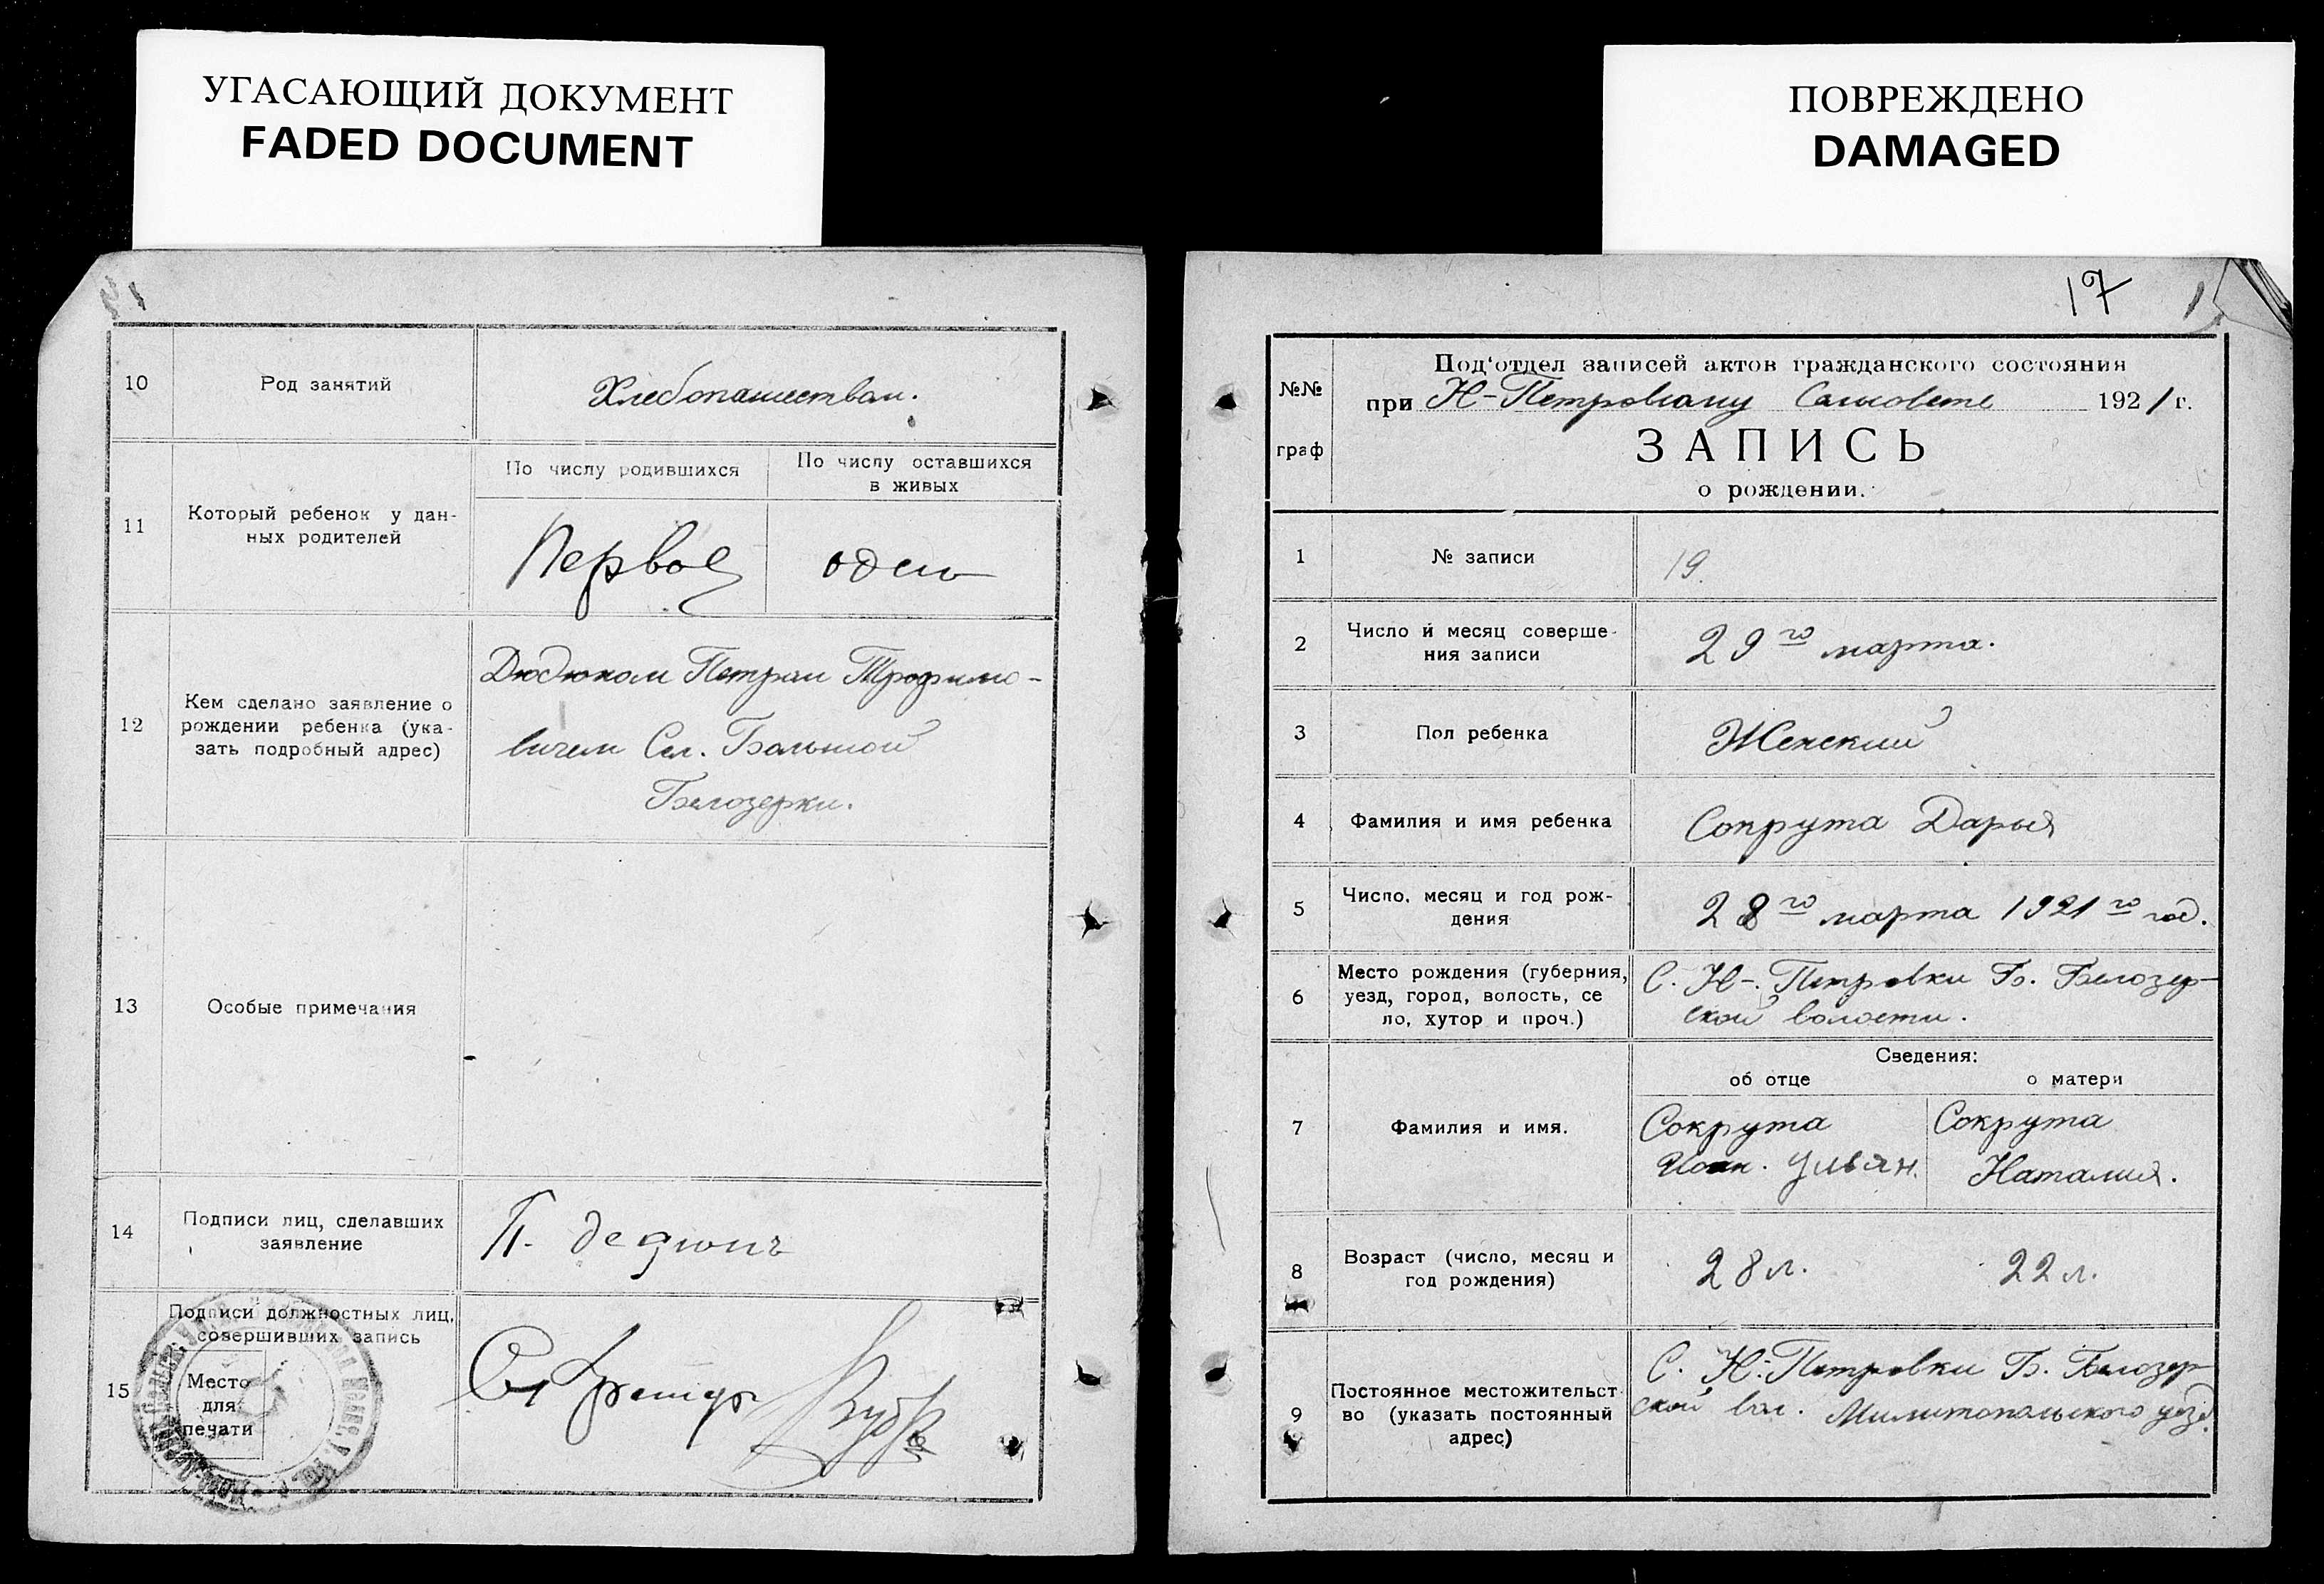 УГАСАЮЩИЙ ДОКУМЕНТ
FADED DOCUMENT
ПОВРЕЖДЕНО
DAMAGED
10
Род занятий
Хлебопашеством.
11
Который ребенок у дан-
ных родителей
По числу родившихся
По числу оставшихся
в живых
Первое
один
12
Кем сделано заявление о
рождении ребенка (ука-
зать подробный адрес)
Дюдюком Петром Трофимо-
вичем Сел. Большой
Белозерки.
13
Особые примечания
14
Подписи лиц, сделавших
заявление
П.
15
Подписи должностных лиц,
совершивших запись
Место
для
печати
17
№№
граф
Под‘отдел записей актов гражданского состояния
при Н-Петровскому Сельсовете 1921 г.
ЗАПИСЬ
о рождении.
1
№ записи
19.
2
Число и месяц соверше-
ния записи
29го марта.
3
Пол ребенка
Женский
4
Фамилия и имя ребенка
Сокрута Дарья
5
Число, месяц и год рож-
дения
28го марта 1921го год.
6
Место рождения (губерния,
уезд, город, волость, се
ло, хутор и проч.)
С. Н-Петровки Б. Белозер-
ской волости.
Сведения:
об отце
о матери
7
Фамилия и имя.
Сокрута
Иоан. Ульян.
Сокрута
Наталия.
8
Возраст (число, месяц и
год рождения)
28 л.
22 л.
9
Постоянное местожительст
во (указать постоянный
адрес)
С. Н-Петровки Б. Белозер
ской вол. Милитопольского уезд.